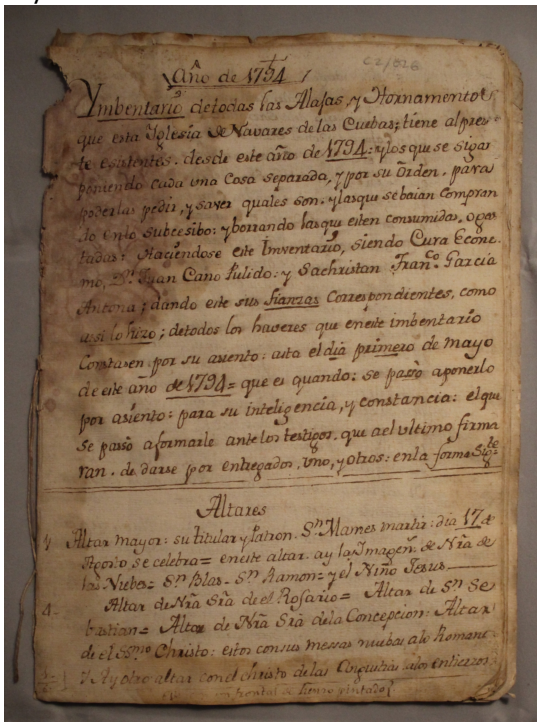 Año de 1794
C2/026
Ymbentario de todas las Alajas, y Hornamentos
que esta Yglesia de Navares de las Cuebas; tiene al pres-
te esistentes. desde este año de 1794: y los que se sigan
poniendo cada una Cosa separada, y por su Orden. para
poderlas pedir, y saver quales son. y las que se baian Compran
do en lo subcesibo: y borrando las que esten consumidas. o gas
tadas: Haciendose este Imventario, siendo Cura Econo-
mo, Dn. Juan Cano Pulido: y Sachristan Franco. Garcia
Antona; dando este sus fianzas Correspondientes, como
asi lo hizo; de todos los haveres que en este imbentario
Constasen por su asiento: asta el dia primero de Mayo
de este año de 1794= que es quando: se passó a ponerlo
por asiento: para su inteligencia, y constancia: el que
Se passó a formarle ante los testigos, que a el ultimo firma
ran. de darse por entregados, uno, y otros: en la forma Sigte
Altares
Altar mayor: su titular y Patron. Sn. Mames martir: dia 17 de
Agosto se celebra= en este altar. ay las Imagen.s de Nra Sa de
las Nieves- Sn. Blas- Sn. Ramon- y el Niño Jesus
4- Altar de Nra Sra de el Rosario= Altar de Sn Se
bastian= Altar de Nra Sra de la Concepcion: Altar
de el SSmo Christo: estos con sus messas nuebas a lo Romano-
Y Ay otro altar con el christo de las Angustias a los entierros:
un frontal de lienzo pintado